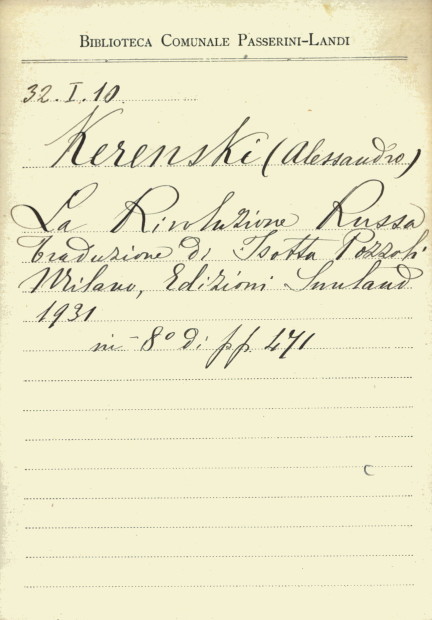 BIBLIOTECA COMUNALE PASSERINI-LANDI
32.I.10
Kerenski (Alessandro)
La Rivoluzione Russa
traduzione di Isotta Pozzoli
Milano, Edizioni Sunland
1931
in-8° di pp 471